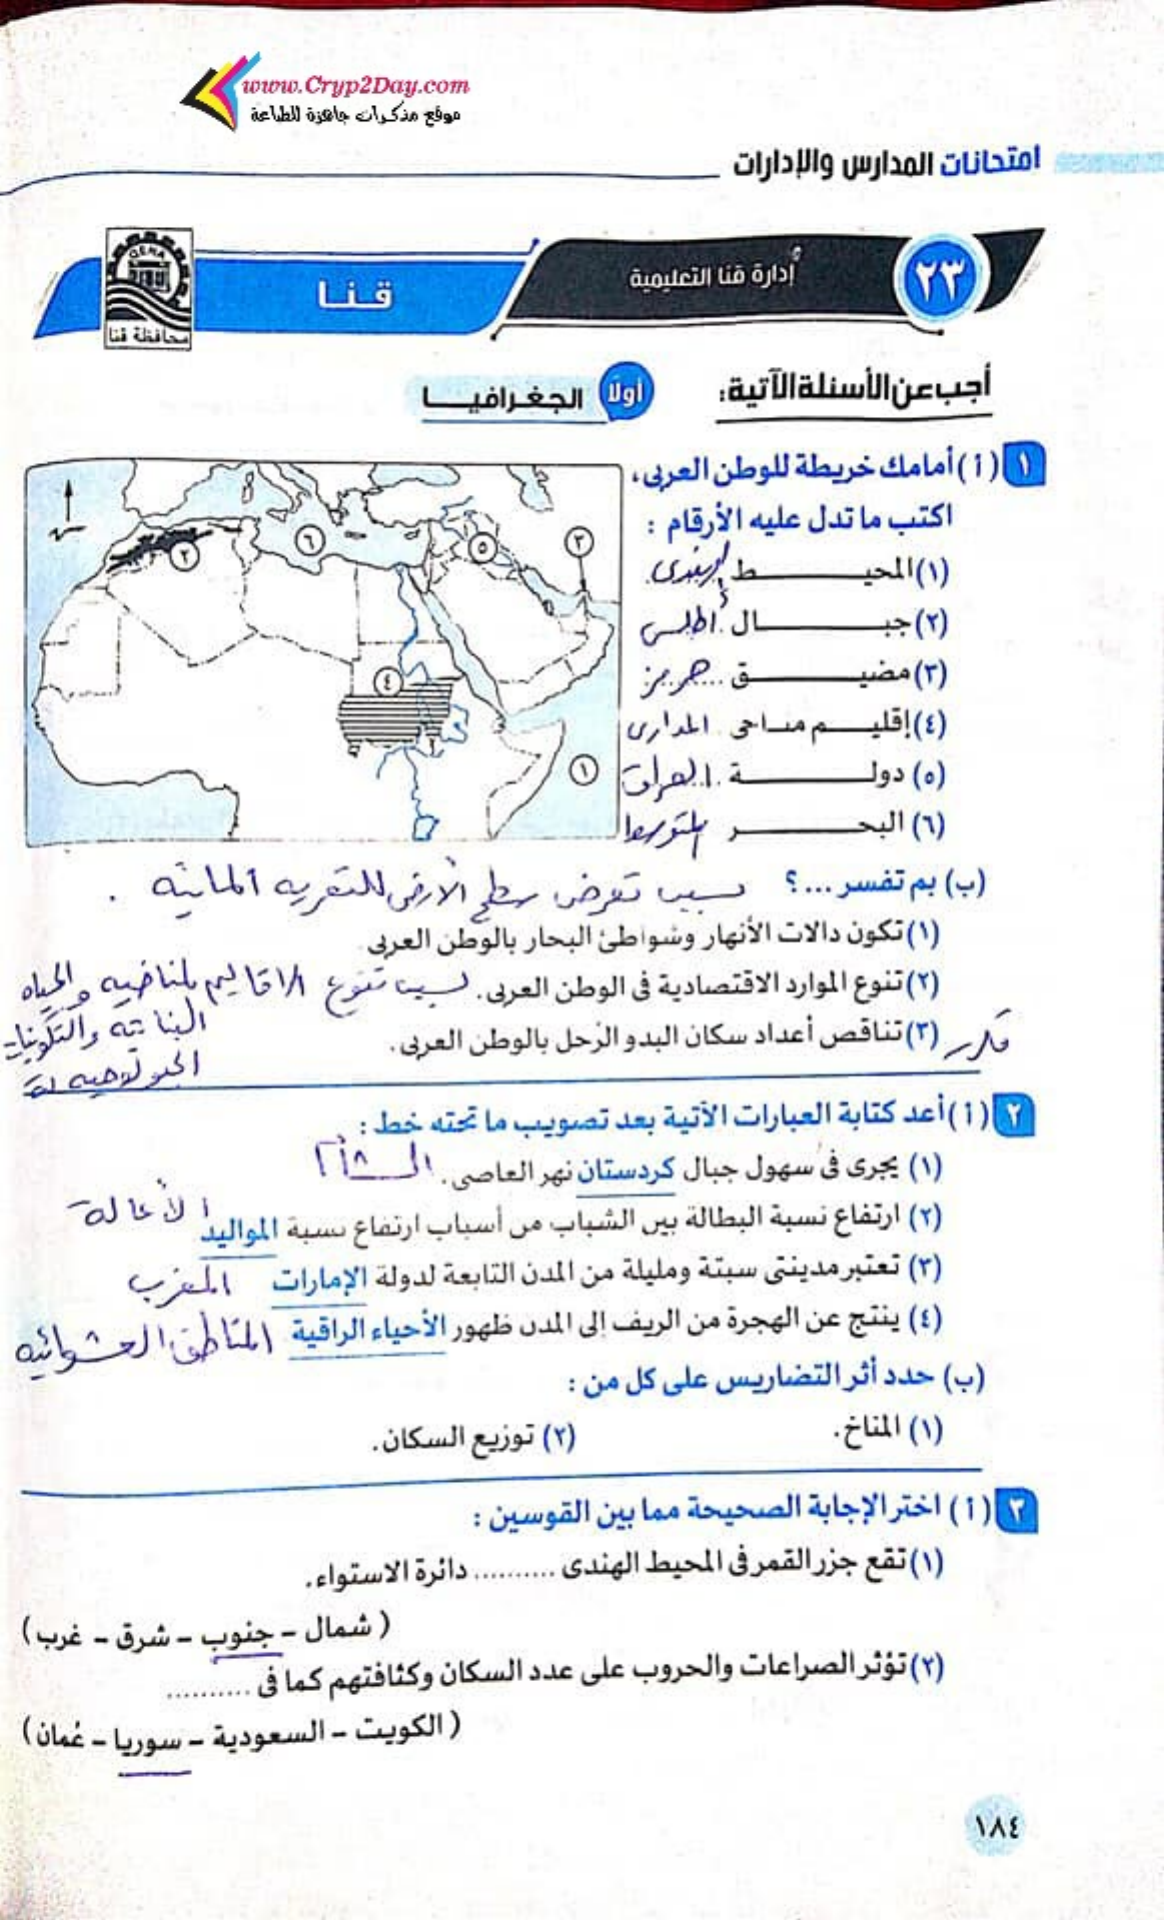 www.Cryp2Day.com
موقع مذكرات جاهزة للطباعة
امتحانات المدارس والإدارات
٢٣
إدارة قنا التعليمية
قنا
QENA
محافظة قنا
أجب عن الأسئلة الآتية:
أولًا الجغرافيا
١ (أ) أمامك خريطة للوطن العربى،
اكتب ما تدل عليه الأرقام :
(١) المحيط الهندى
(٢) جبال أطلس
(٣) مضيق هرمز
(٤) إقليم مناخى المدارى
(٥) دولة العراق
(٦) البحر المتوسط
٢
٦
٥
٣
٤
١
(ب) بم تفسر ...؟ بسبب تعرض سطح الأرض للتعرية المائية .
(١) تكون دالات الأنهار وشواطئ البحار بالوطن العربى
(٢) تنوع الموارد الاقتصادية فى الوطن العربى. بسبب تنوع الاقاليم المناخيه والحياه
النباتية والتكوينات
الجيولوجيه له
(٣) تناقص أعداد سكان البدو الرُحل بالوطن العربى. مكرر
٢ (أ) أعد كتابة العبارات الآتية بعد تصويب ما تحته خط :
(١) يجرى فى سهول جبال كردستان نهر العاصى. الشام
(٢) ارتفاع نسبة البطالة بين الشباب من أسباب ارتفاع نسبة المواليد الأعالة
(٣) تعتبر مدينتى سبتة ومليلة من المدن التابعة لدولة الإمارات المغرب
(٤) ينتج عن الهجرة من الريف إلى المدن ظهور الأحياء الراقية المناطق العشوائيه
(ب) حدد أثر التضاريس على كل من :
(١) المناخ. (٢) توزيع السكان.
٣ (أ) اختر الإجابة الصحيحة مما بين القوسين :
(١) تقع جزر القمر فى المحيط الهندى .......... دائرة الاستواء.
(شمال - جنوب - شرق - غرب)
(٢) تؤثر الصراعات والحروب على عدد السكان وكثافتهم كما فى ..........
(الكويت - السعودية - سوريا - عُمان)
١٨٤